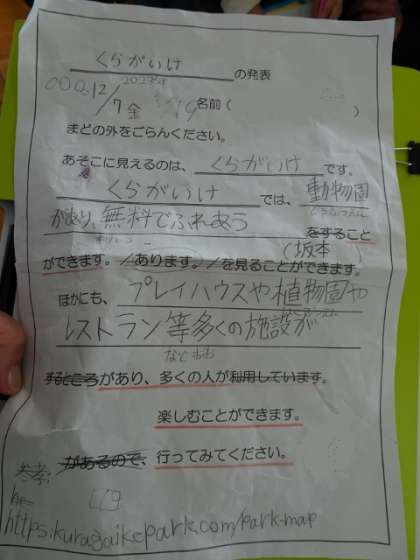 くらがいけの発表
2023年
12/7金 名前( )
まどの外をごらんください。
あそこに見えるのは、くらがいけです。
くらがいけでは、動物園
どうぶつえん
があり、無料でふれあうをすること
(坂本)
ができます。/あります。/を見ることができます。
ほかにも、プレイハウスや植物園や
レストラン等多くの施設が
など
するところがあり、多くの人が利用しています。
楽しむことができます。
があるので、行ってみてください。
参考:
https:kuragaikepark.com/park-map